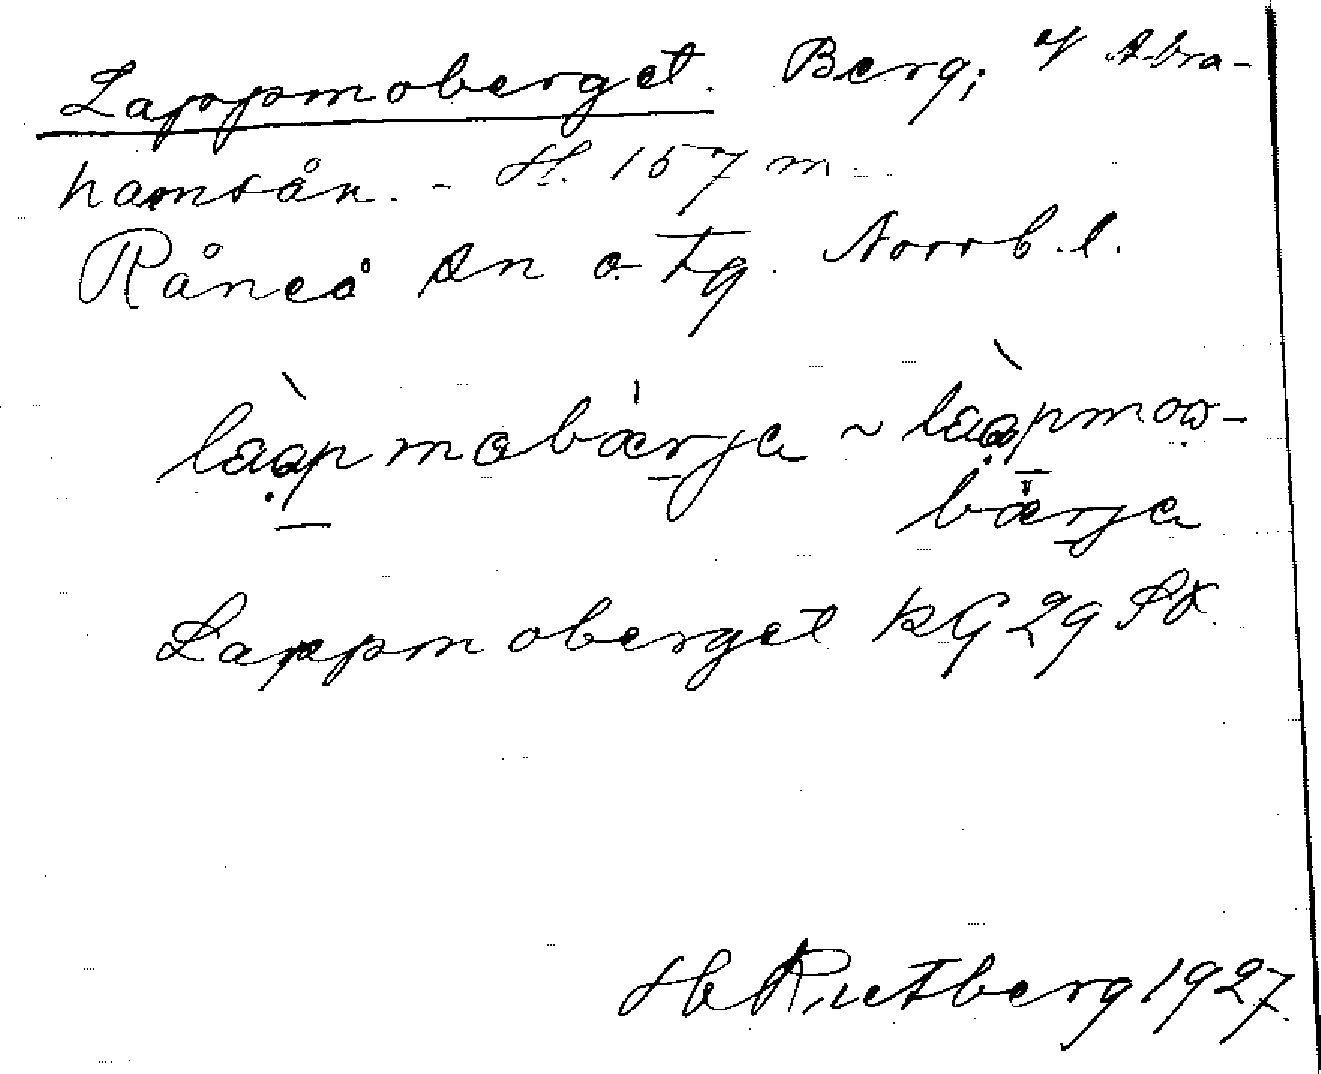 Lappmoberget. Berg; v Abra-
hamsån. - H. 157 m.
Råneå sn o. tg. Norrb. l.
làapmobærje ~ làapmoo-
bærje
Lappmoberget kG 29 SK.
H Rutberg 1927.